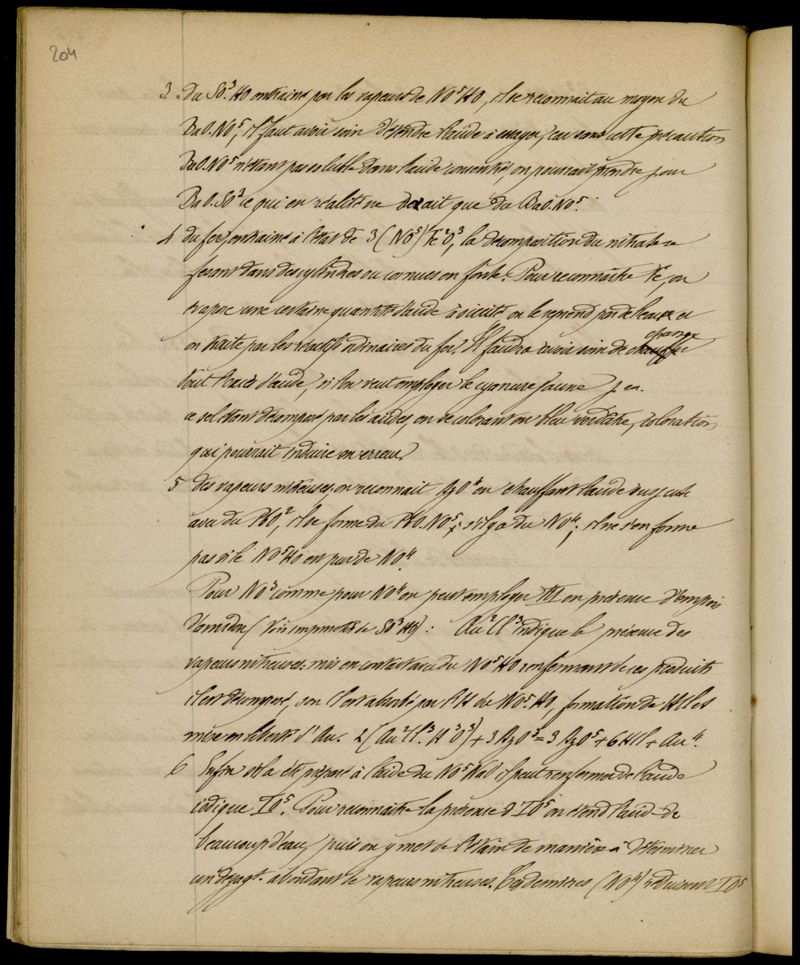 204
3 Du SO³HO entrainé par les vapeurs de NO⁵HO, il se reconnait au moyen du
BaO.NO⁵, il faut avoir soin d'étendre l'acide à essayer, car sans cette précaution
BaO.NO⁵ n'étant pas soluble dans l'acide concentré, on pourrait prendre pour
BaO.SO³ ce qui en réalité ne serait que du BaO.NO⁵.
4 du fer, entrainé à l'état de 3(NO⁵)Fe²O³, la décomposition du nitrate se
ferant dans des cylindres ou cornues en fonte. Pour reconnaître Fe, on
évapore une certaine quantité d'acide à siccité, on le reprend par de l'eau et
on traite par les réactifs ordinaires du fer. Il faudra avoir soin de chasser
tout l'excès d'acide, si l'on veut employer le cyanure jaune p. ex.
ce sel étant décomposé par les acides, en se colorant en bleu verdâtre, coloration
qui pourrait induire en erreur.
5 des vapeurs nitreuses, on reconnait AzO⁴ en chauffant l'acide suspecté
avec du PbO², il se forme du PbO.NO⁵, s'il y a du NO⁴; il ne s'en forme
pas si le NO⁵HO est pur de NO⁴.
Pour NO³ comme pour NO⁴ on peut employer KI en présence d'empois
d'amidon (Voir impuretés de SO³HO): Au²Cl³ indique la présence des
vapeurs nitreuses: mis en contact avec du NO⁵HO renfermant de ces produits
il est décomposé, son Cl est absorbé par l'H de NO⁵.HO, formation de HCl et
mise en liberté d'Au. 2(Au²Cl³.H³O³)+3AzO³=3AzO⁵+6HCl+Au⁴.
6 Enfin s'il a été préparé à l'aide du NO⁵NaO il peut renfermer de l'acide
iodique IO⁵. Pour reconnaître la présence d'IO⁵ on étend l'acide de
beaucoup d'eau, puis on y met de l'étain de manière à déterminer
un dégagt. abondant de vapeurs nitreuses. Ces dernières (NO⁴) réduisent IO⁵